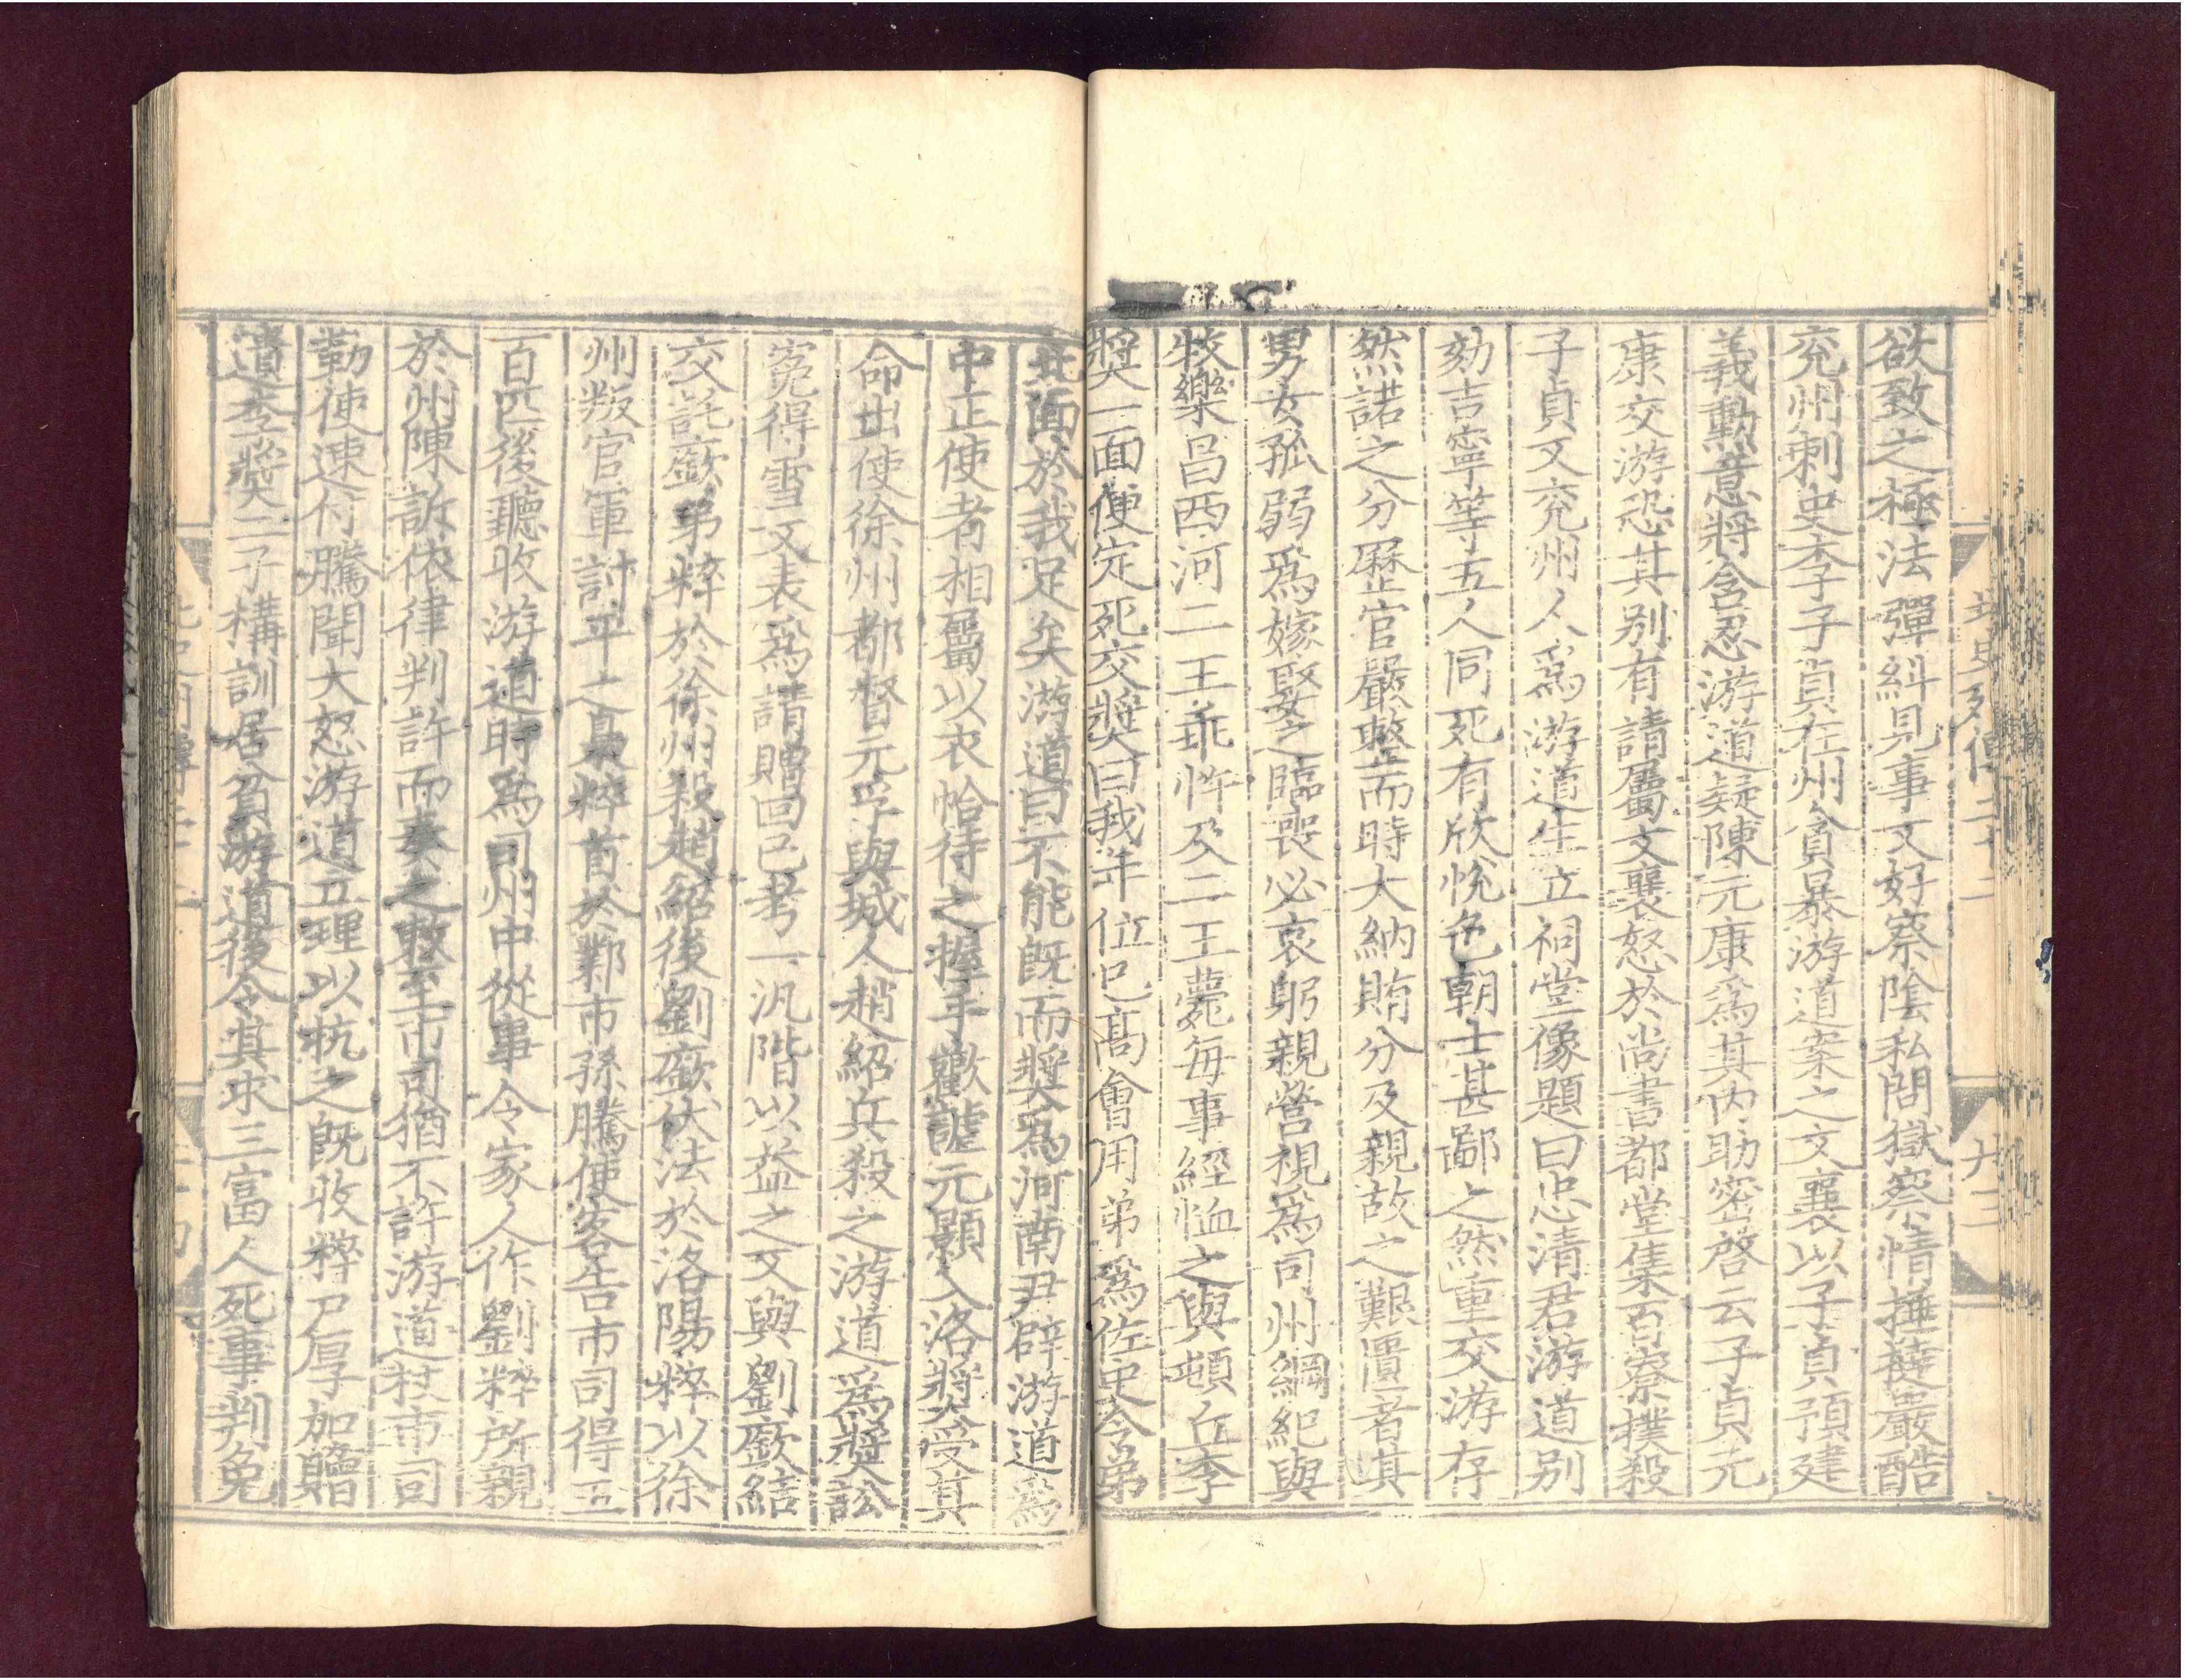 北史列傳二十二
廿三
欲致之極法彈糾見事又好察陰私問獄察情捶撻嚴酷
兗州刺史李子貞在州貪暴游道案之文襄以子貞預建
義勲意將含忍游道疑陳元康爲其内助密啓云子貞元
康交游恐其别有請屬文襄怒於尚書都堂集百寮撲殺
子貞又兗州人爲游道生立祠堂像題曰忠清君游道别
劾吉寧等五人同死有欣悅色朝士甚鄙之然重交游存
然諾之分歷官嚴整而時大納賄分及親故之艱匱者其
男女孤弱爲嫁娶之臨喪必哀躬親營視爲司州綱紀與
牧樂昌西河二王乖忤及二王薨每事經恤之與頓丘李
奬一面便定死交奬曰我年位已高會用弟爲佐史令弟
北面於我足矣游道曰不能既而奬爲河南尹辟游道爲
中正使者相屬以衣帢待之握手歡謔元顥入洛奬受其
命出使徐州都督元孚與城人趙紹兵殺之游道爲奬訟
冤得雪又表爲請贈回己考一汎階以益之又與劉廞結
交託廞弟粹於徐州殺趙紹後劉廞伏法於洛陽粹以徐
州叛官軍討平之梟粹首於鄴市孫騰使客告市司得五
百匹後聽收游道時爲司州中從事令家人作劉粹所親
於州陳訴依律判許而奏之敕至市司猶不許游道杖市司
勒使速付騰聞大怒游道立理以抗之既收粹尸厚加贈
遺李奬二子構訓居貧游道後令其求三富人死事判免